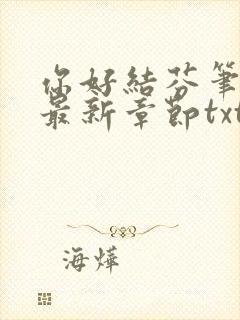 你好結芬筆
最新章節txt
海燁